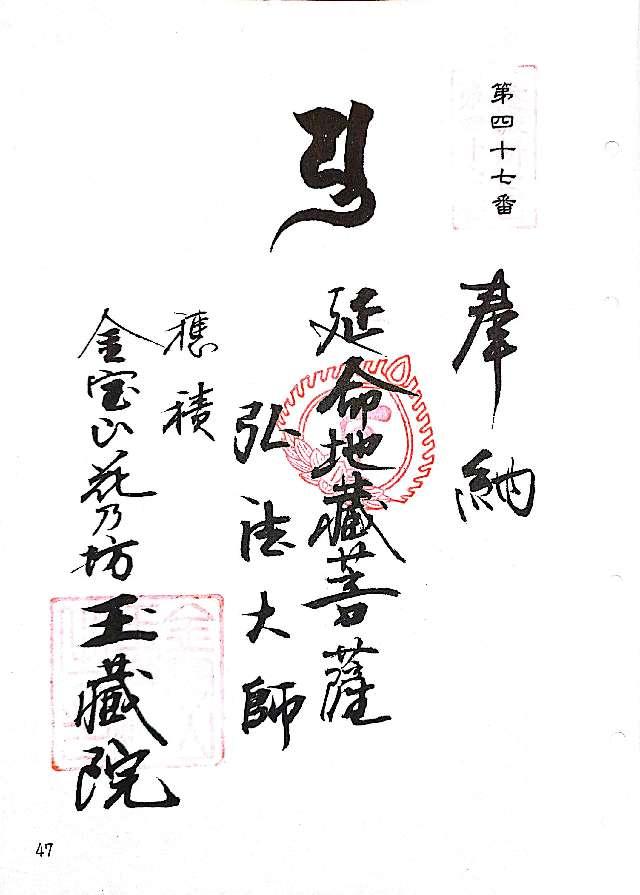 第四十七番
奉納
延命地蔵菩薩
弘法大師
穂積
金宝山花乃坊玉蔵院
47